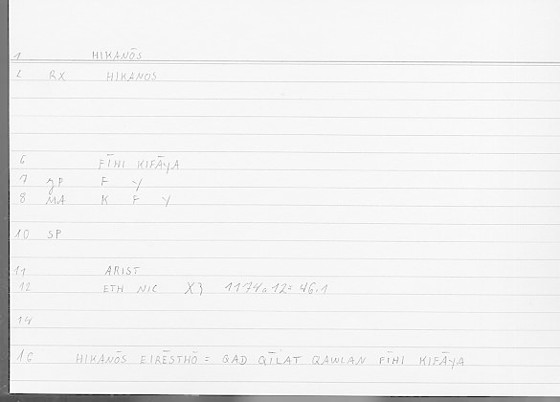 1 HIKANŌS
2 RX HIKANOS
6 FĪHI KIFĀYA
7 gP F Y
8 MA K F Y
10 SP
11 ARIST
12 ETH NIC X3 1174a12: 46.1
14
16 HIKANŌS EIRĒSTHŌ = QAD QĪLAT QAWLAN FĪHI KIFĀYA